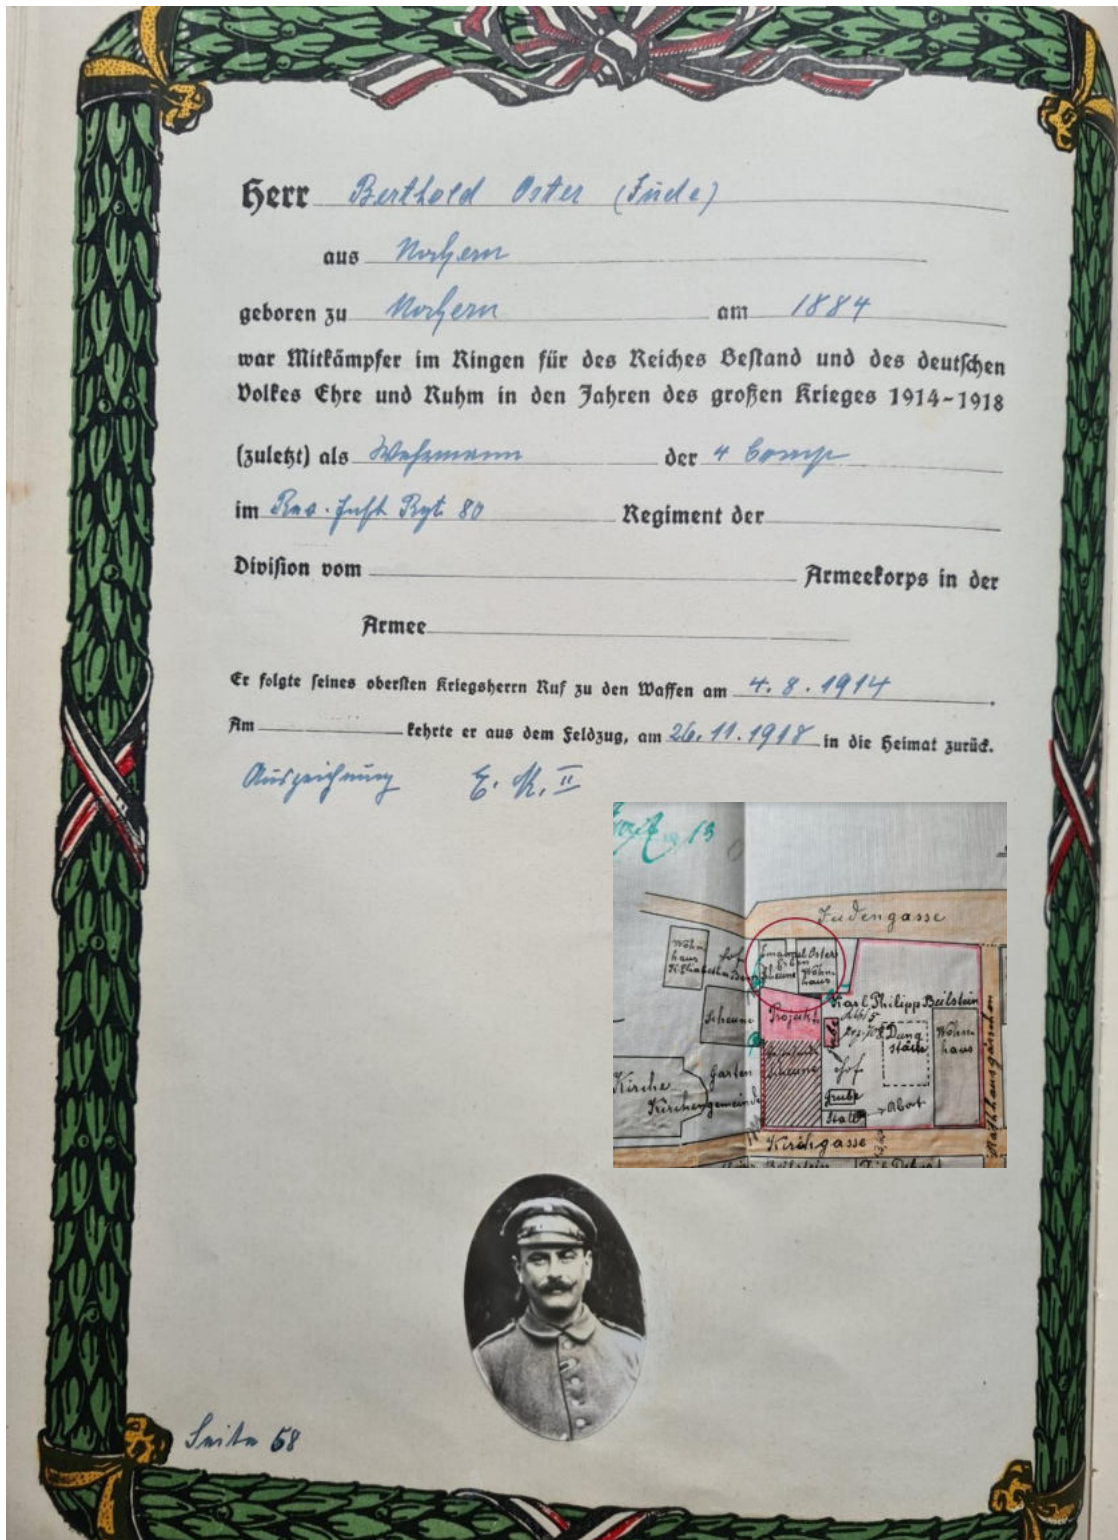 Herr Berthold Oster (Jude)
aus Nochern
geboren zu Nochern am 1884
war Mitkämpfer im Ringen für des Reiches Bestand und des deutschen
Volkes Ehre und Ruhm in den Jahren des großen Krieges 1914-1918
(zuletzt) als Wehrmann der 4 Comp
im Res. Inft Rgt. 80 Regiment der
Division vom Armeekorps in der
Armee
Er folgte seines obersten Kriegsherrn Ruf zu den Waffen am 4.8.1914.
Am kehrte er aus dem Feldzug, am 26.11.1918 in die Heimat zurück.
Auszeichnung E. K. II
13
Judengasse
Wohn
haus
Hof
Emanuel Oster
Erben
Scheune Wohn
haus
Karl Philipp Beilstein
Scheune
Projekt
Dung
stätte
Wohn
haus
Scheune
Hof
Garten
Kirche
Kirchengemeinde
Grube
Stall
Abort
Rathhausgässchen
Kirchgasse
Beilstein
Seite 58